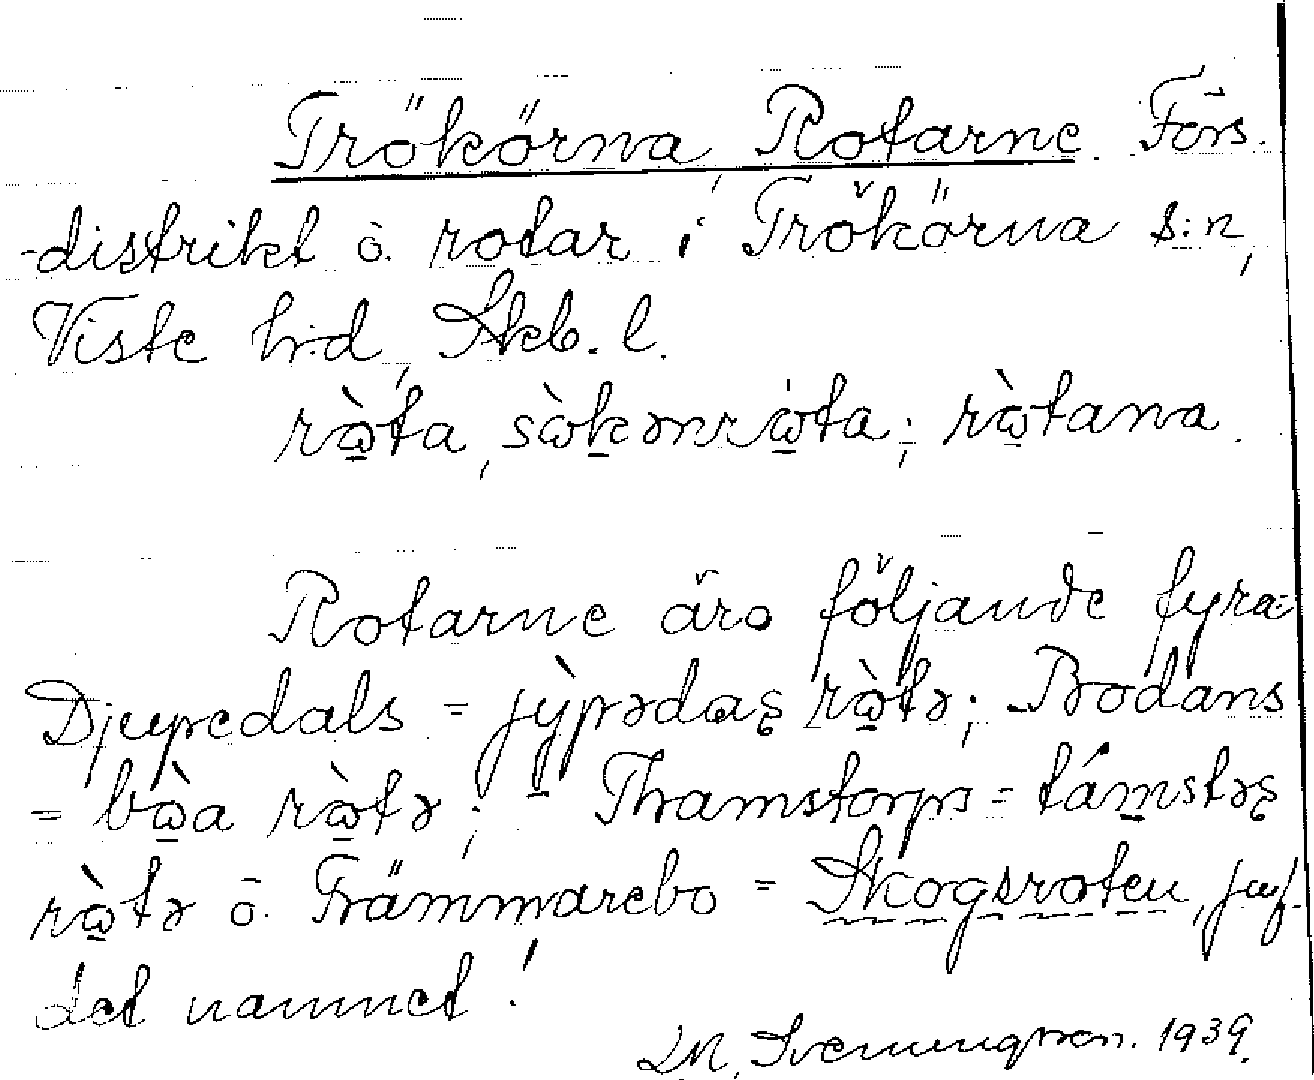 Trökörna Rotarne. Förs.
-distrikt o. rotar i Trökörna s:n,
Viste h:d, Skb. l.
rɷ̀ta, sɷ̀kənrɷ̀ta; rɷ̀tana.
Rotarne äro följande fyra:
Djupedals = jỳpədaʂ rɷ̀tə; Bodans
= bɷ̀a rɷ̀tə; Thamstorps = támstəʂ
rɷ̀tə o. Främmarebo = Skogsroten, jmf.
det namnet!
Svenungsson. 1939.